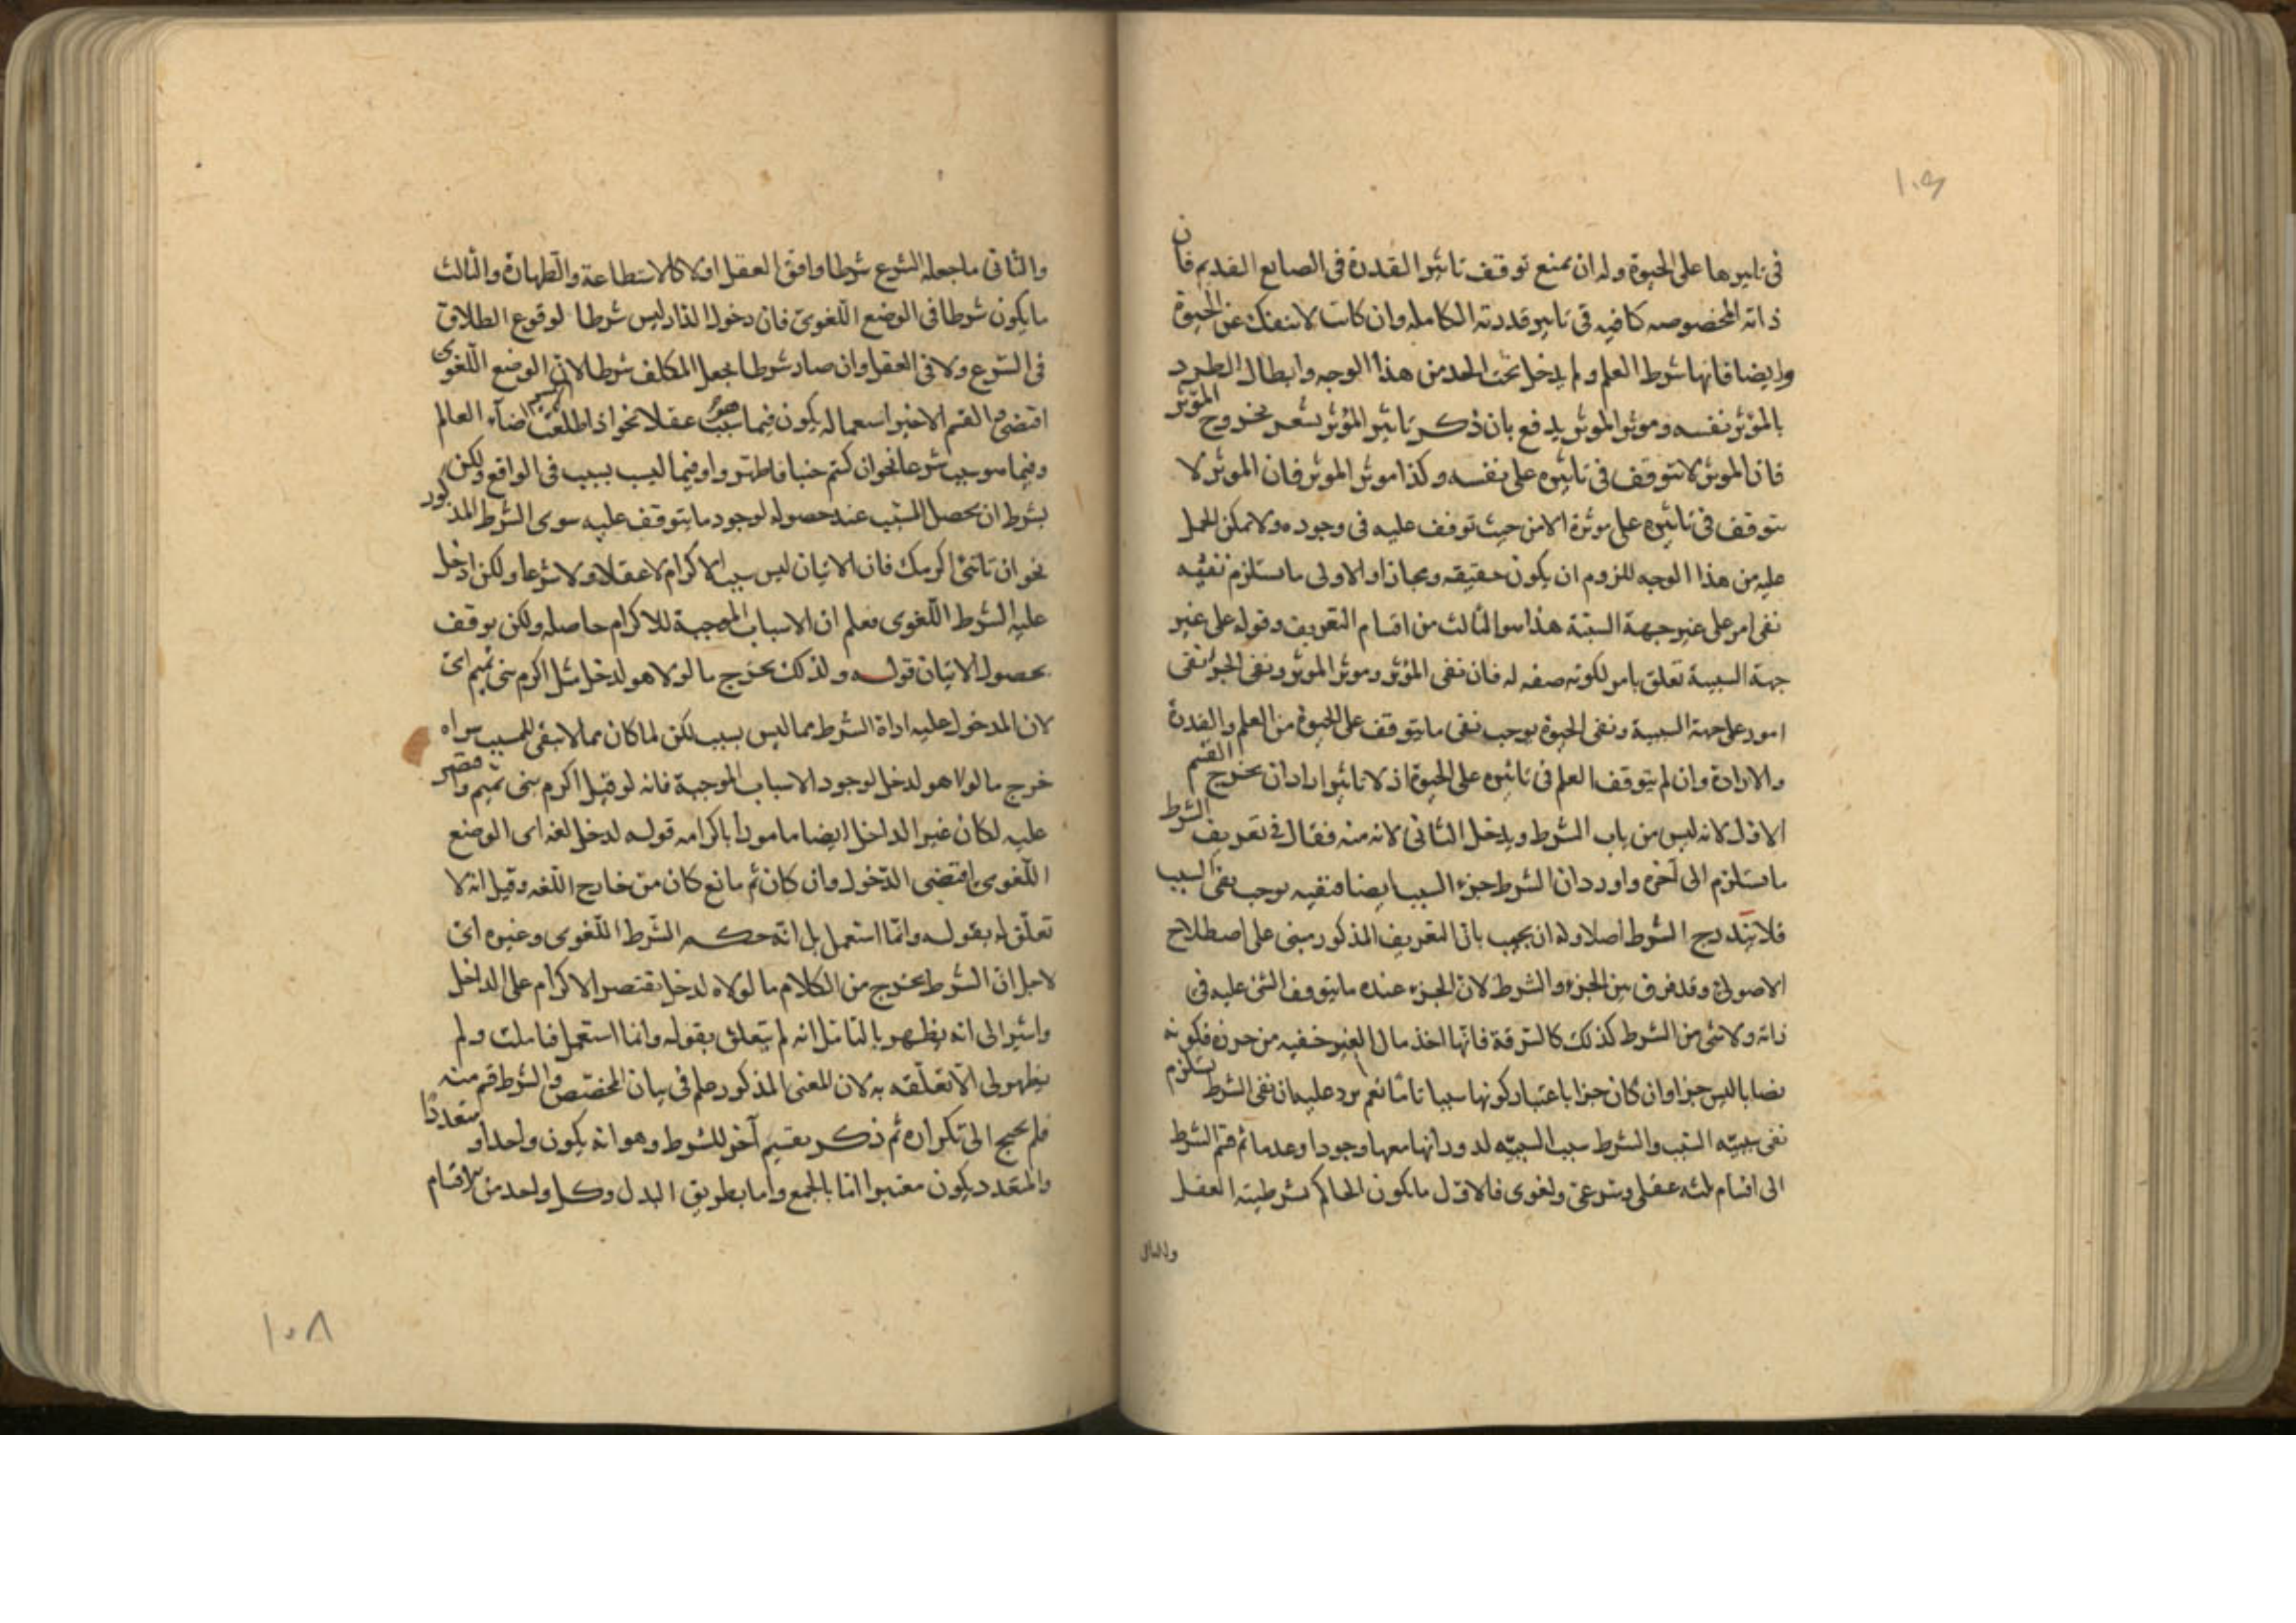 في تاثيرها على الحيوة وله ان يمنع توقف تاثير القدرة في الصانع القديم فان
ذاته المخصوصه كافيه في تاثير قدرته الكامله وان كانت لا تنفك عن الحيوة
وايضا فانها شرط العلم ولم يدخل تحت الحد من هذا الوجه وابطال الطرد
بالمؤثر نفسه وموثر الموثر يدفع بان ذكر تاثير المؤثر يشعر بخروج المؤثر
فان الموثر لا يتوقف في تاثيره على نفسه وكذا موثر الموثر فان الموثر لا
يتوقف في تاثيره على موثره الا من حيث توقف عليه في وجوده ولا يمكن الحمل
عليه من هذا الوجه للزوم ان يكون حقيقه ومجازا والاولى ما يستلزم نفيه
نفى امر على غير جهة السببية هذا هو الثالث من اقسام التعريف وقوله على غير
جهة السببية تعلق بامر لكونه صفه له فان نفى المؤثر وموثر الموثر ونفى الجزء نفى
امور على جهة السببية ونفى الحيوة يوجب نفى ما يتوقف على الحيوة من العلم والقدرة
والارادة وان لم يتوقف العلم في تاثيره على الحيوة اذ لا تاثير اراد ان يخرج القسم
الاول لانه ليس من باب الشرط ويدخل الثاني لانه منه فقال في تعريف الشرط
ما يستلزم الى آخره واورد ان الشرط جزء السبب ايضا فنفيه يوجب نفى السبب
فلا يندرج الشرط اصلا وله ان يجيب بان التعريف المذكور مبنى على اصطلاح
الاصولي وقد فرق بين الجزء والشرط لان الجزء عنده ما يتوقف الشئ عليه في
ذاته ولا شئ من الشرط كذلك كالسرقة فانها اخذ مال الغير خفيه من حرز فكونه
نصابا ليس جزا وان كان جزا باعتبار كونها سببا تاما نعم يرد عليه ان نفى الشرط يستلزم
نفى سببيه السبب والشرط سبب السببيه لدورانها معها وجودا وعدما ثم قسم الشرط
الى اقسام ثلثه عقلي وشرعي ولغوى فالاول ما يكون الحاكم بشرطيته العقل
والثاني
والثاني ما جعله الشرع شرطا وافق العقل او لا كالاستطاعة والطهارة والثالث
ما يكون شرطا في الوضع اللغوي فان دخول الدار ليس شرطا لوقوع الطلاق
في الشرع ولا في العقل وان صار شرطا بجعل المكلف شرطا لان الوضع اللغوى
اقتضى القسم الاخير استعماله يكون فيما هو سبب عقلا نحو اذا طلعت الشمس اضاء العالم
وفيما هو سبب شرعا نحو ان كنتم جنبا فاطهروا وفيما ليس بسبب في الواقع ولكن
بشرط ان يحصل المسبب عند حصوله لوجود ما يتوقف عليه سوى الشرط المذكور
نحو ان تاتني اكرمك فان الاتيان ليس سبب الاكرام لا عقلا ولا شرعا ولكن ادخل
عليه الشرط اللغوى فعلم ان الاسباب الموجبة للاكرام حاصله ولكن توقف
بحصول الاتيان قوله ولذلك يخرج ما لولا هو لدخل مثل اكرم بنى تميم اى
لان المدخول عليه اداة الشرط مما ليس بسبب لكن لما كان مما لا يبقى للمسبب سواه
خرج ما لولا هو لدخل لوجود الاسباب الموجبة فانه لو قيل اكرم بنى تميم واقتصر
عليه لكان غير الداخل ايضا مامورا باكرامه قوله لدخل لغه اى الوضع
اللغوى اقتضى الدخول وان كان ثم مانع كان من خارج اللغه وقيل انه لا
تعلق له بقوله وانما استعمل بل انه حكم الشرط اللغوى وغيره اى
لاجل ان الشرط يخرج من الكلام ما لولاه لدخل يقتصر الاكرام على الداخل
واشير الى انه يظهر بالتامل انه لم يتعلق بقوله وانما استعمل فتاملت ولم
يظهر لى الا تعلقه به لان المعنى المذكور علم في بيان المخصص والشرط قسم منه
فلم يحتج الى تكراره ثم ذكر تقسيم آخر للشرط وهو انه يكون واحدا ومتعددا
والمتعدد يكون معتبرا اما بالجمع واما بطريق البدل وكل واحد من الاقسام
١٠٨